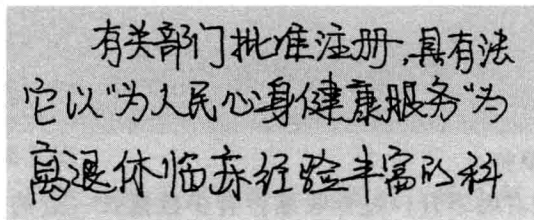 有关部门批准注册,具有法
它以“为人民心身健康服务”为
离退休临床经验丰富的科